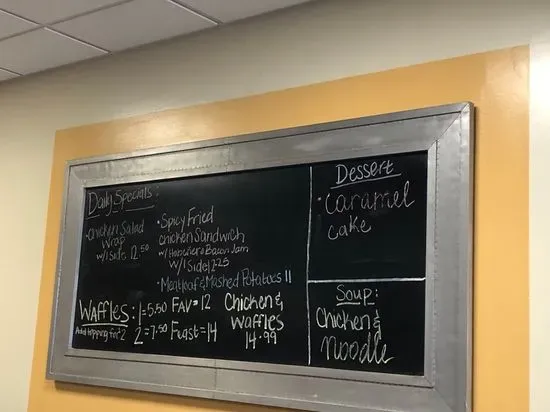 Daily Specials:
·Chicken Salad
Wrap
w/1 side 12.50
·Spicy Fried
Chicken Sandwich
w/ Habenero Bacon Jam
w/1 Side 12.25
·Meatloaf & Mashed Potatoes 11
Waffles: 1=5.50 FAV=12
Add topping for 2 2=7.50 Feast=14
Chicken &
Waffles
14.99
Dessert
·Caramel
Cake
Soup:
Chicken &
Noodle